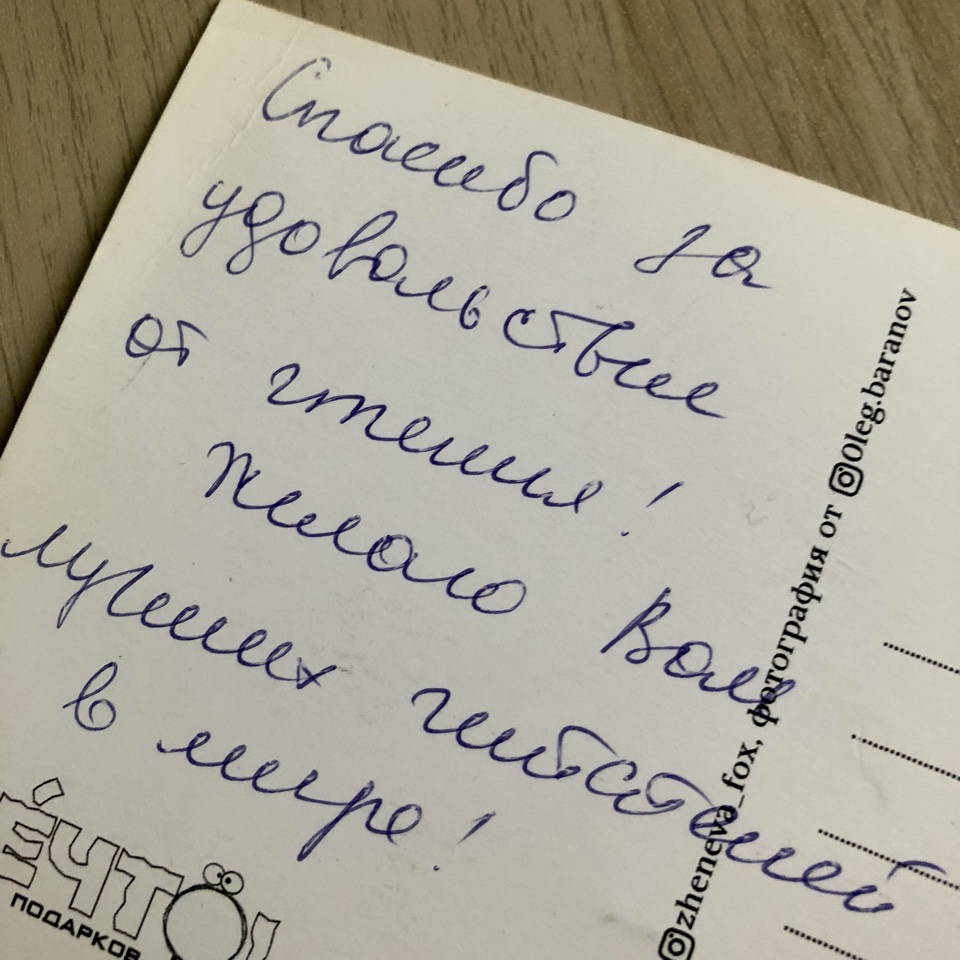 Спасибо за
удовольствие
от чтения!
Желаю Вам
лучших читателей
в мире!
ЁЧТО
ПОДАРКОВ
zheneva_fox, фотография от 0leg.baranov